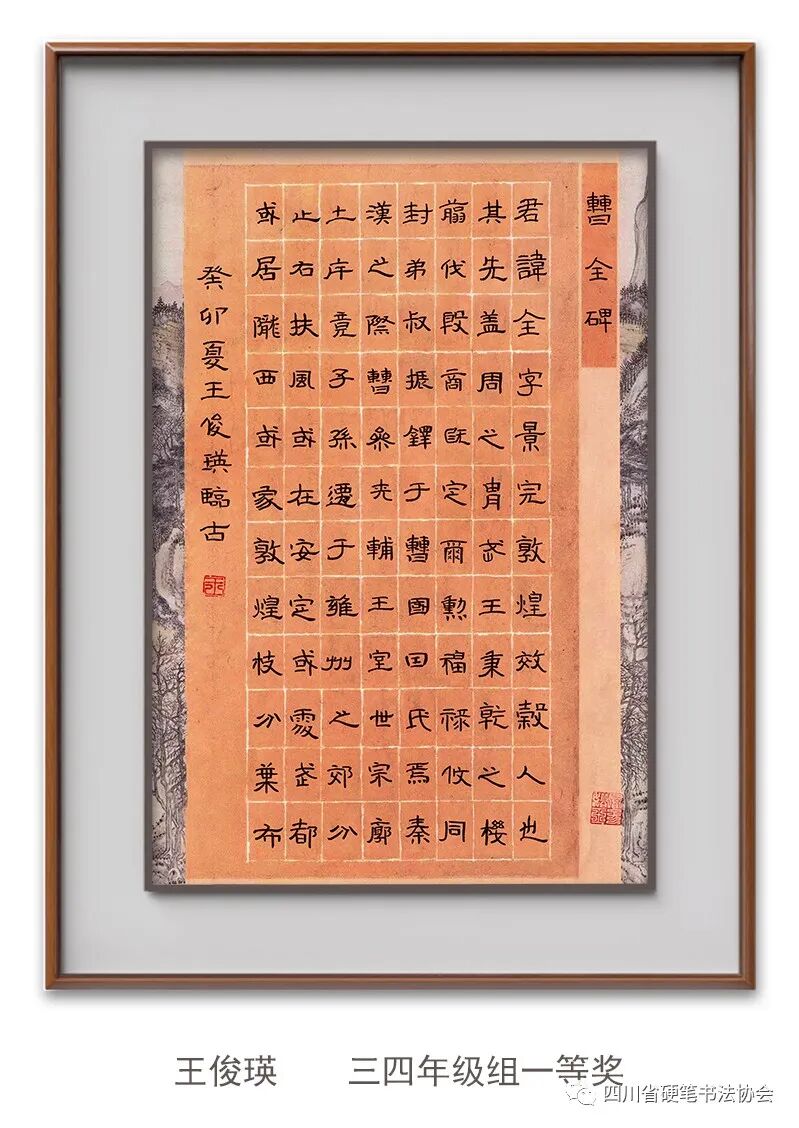 曹全碑
君諱全字景完敦煌效穀人也
其先盖周之胄武王秉乾之機
翦伐殷商既定爾勳福祿攸同
封弟叔振鐸于曹國因氏焉秦
漢之際曹參夾輔王室世宗廓
土斥竟子孫遷于雍州之郊分
止右扶風或在安定或處武都
或居隴西或家敦煌枝分葉布
癸卯夏王俊瑛臨古
王俊瑛 三四年级组一等奖
四川省硬笔书法协会